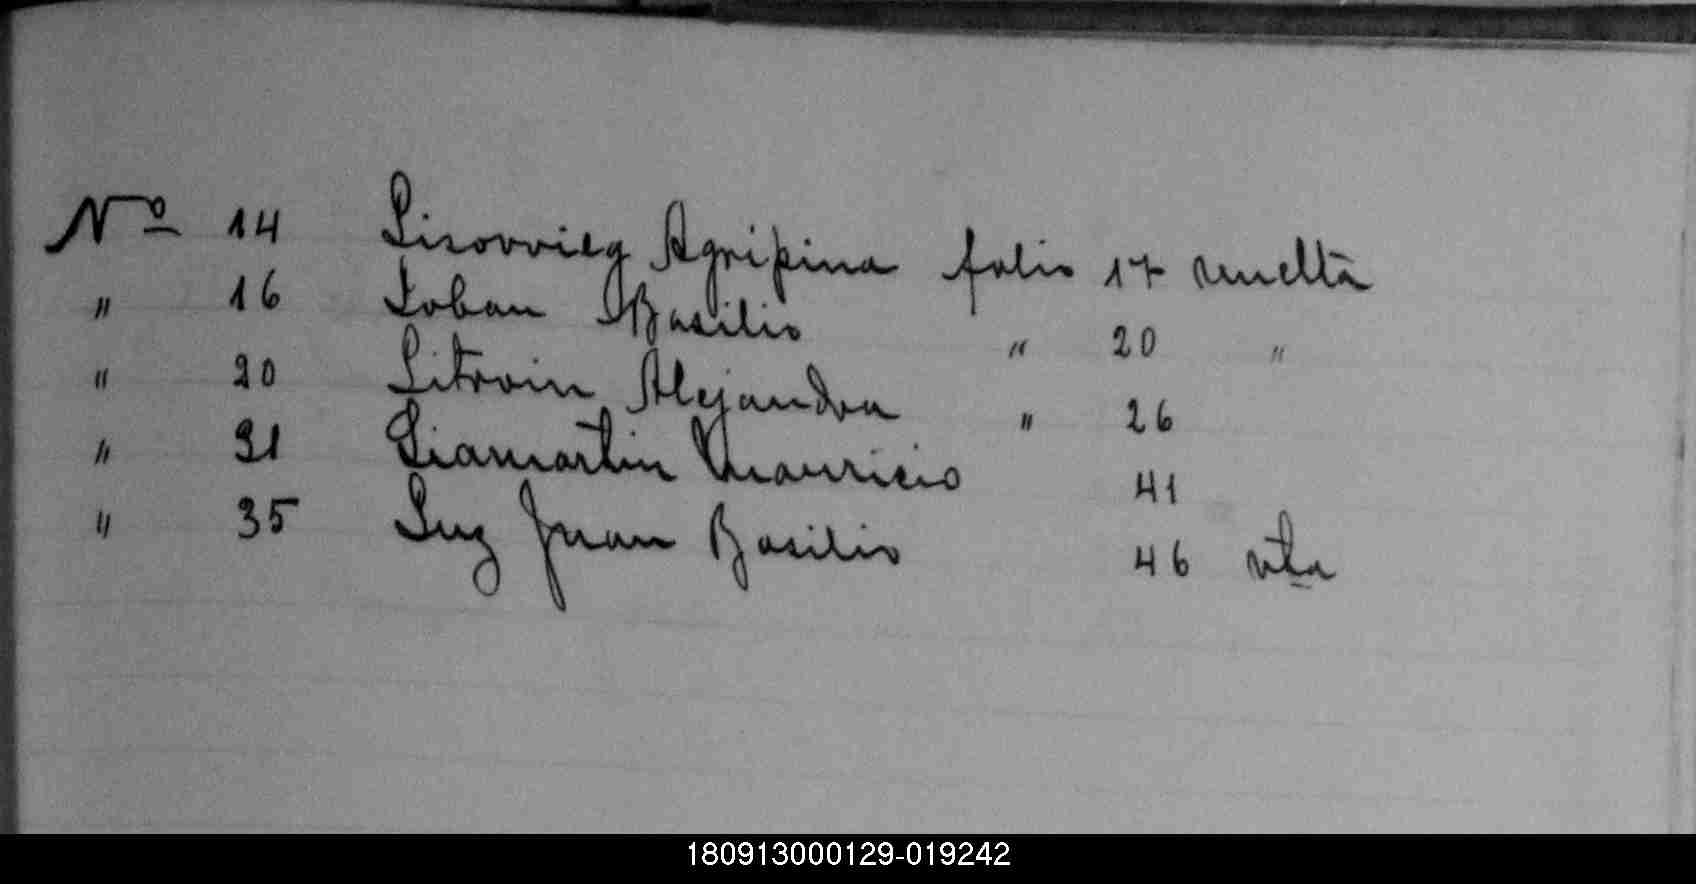 Nº 14 Lisovvieg Agripina folio 17 vuelta
" 16 Loban Basilio " 20 "
" 20 Litvoin Alejandra " 26
" 31 Liamartin Mauricio 41
" 35 Luz Juan Basilio 46 vta
180913000129-019242